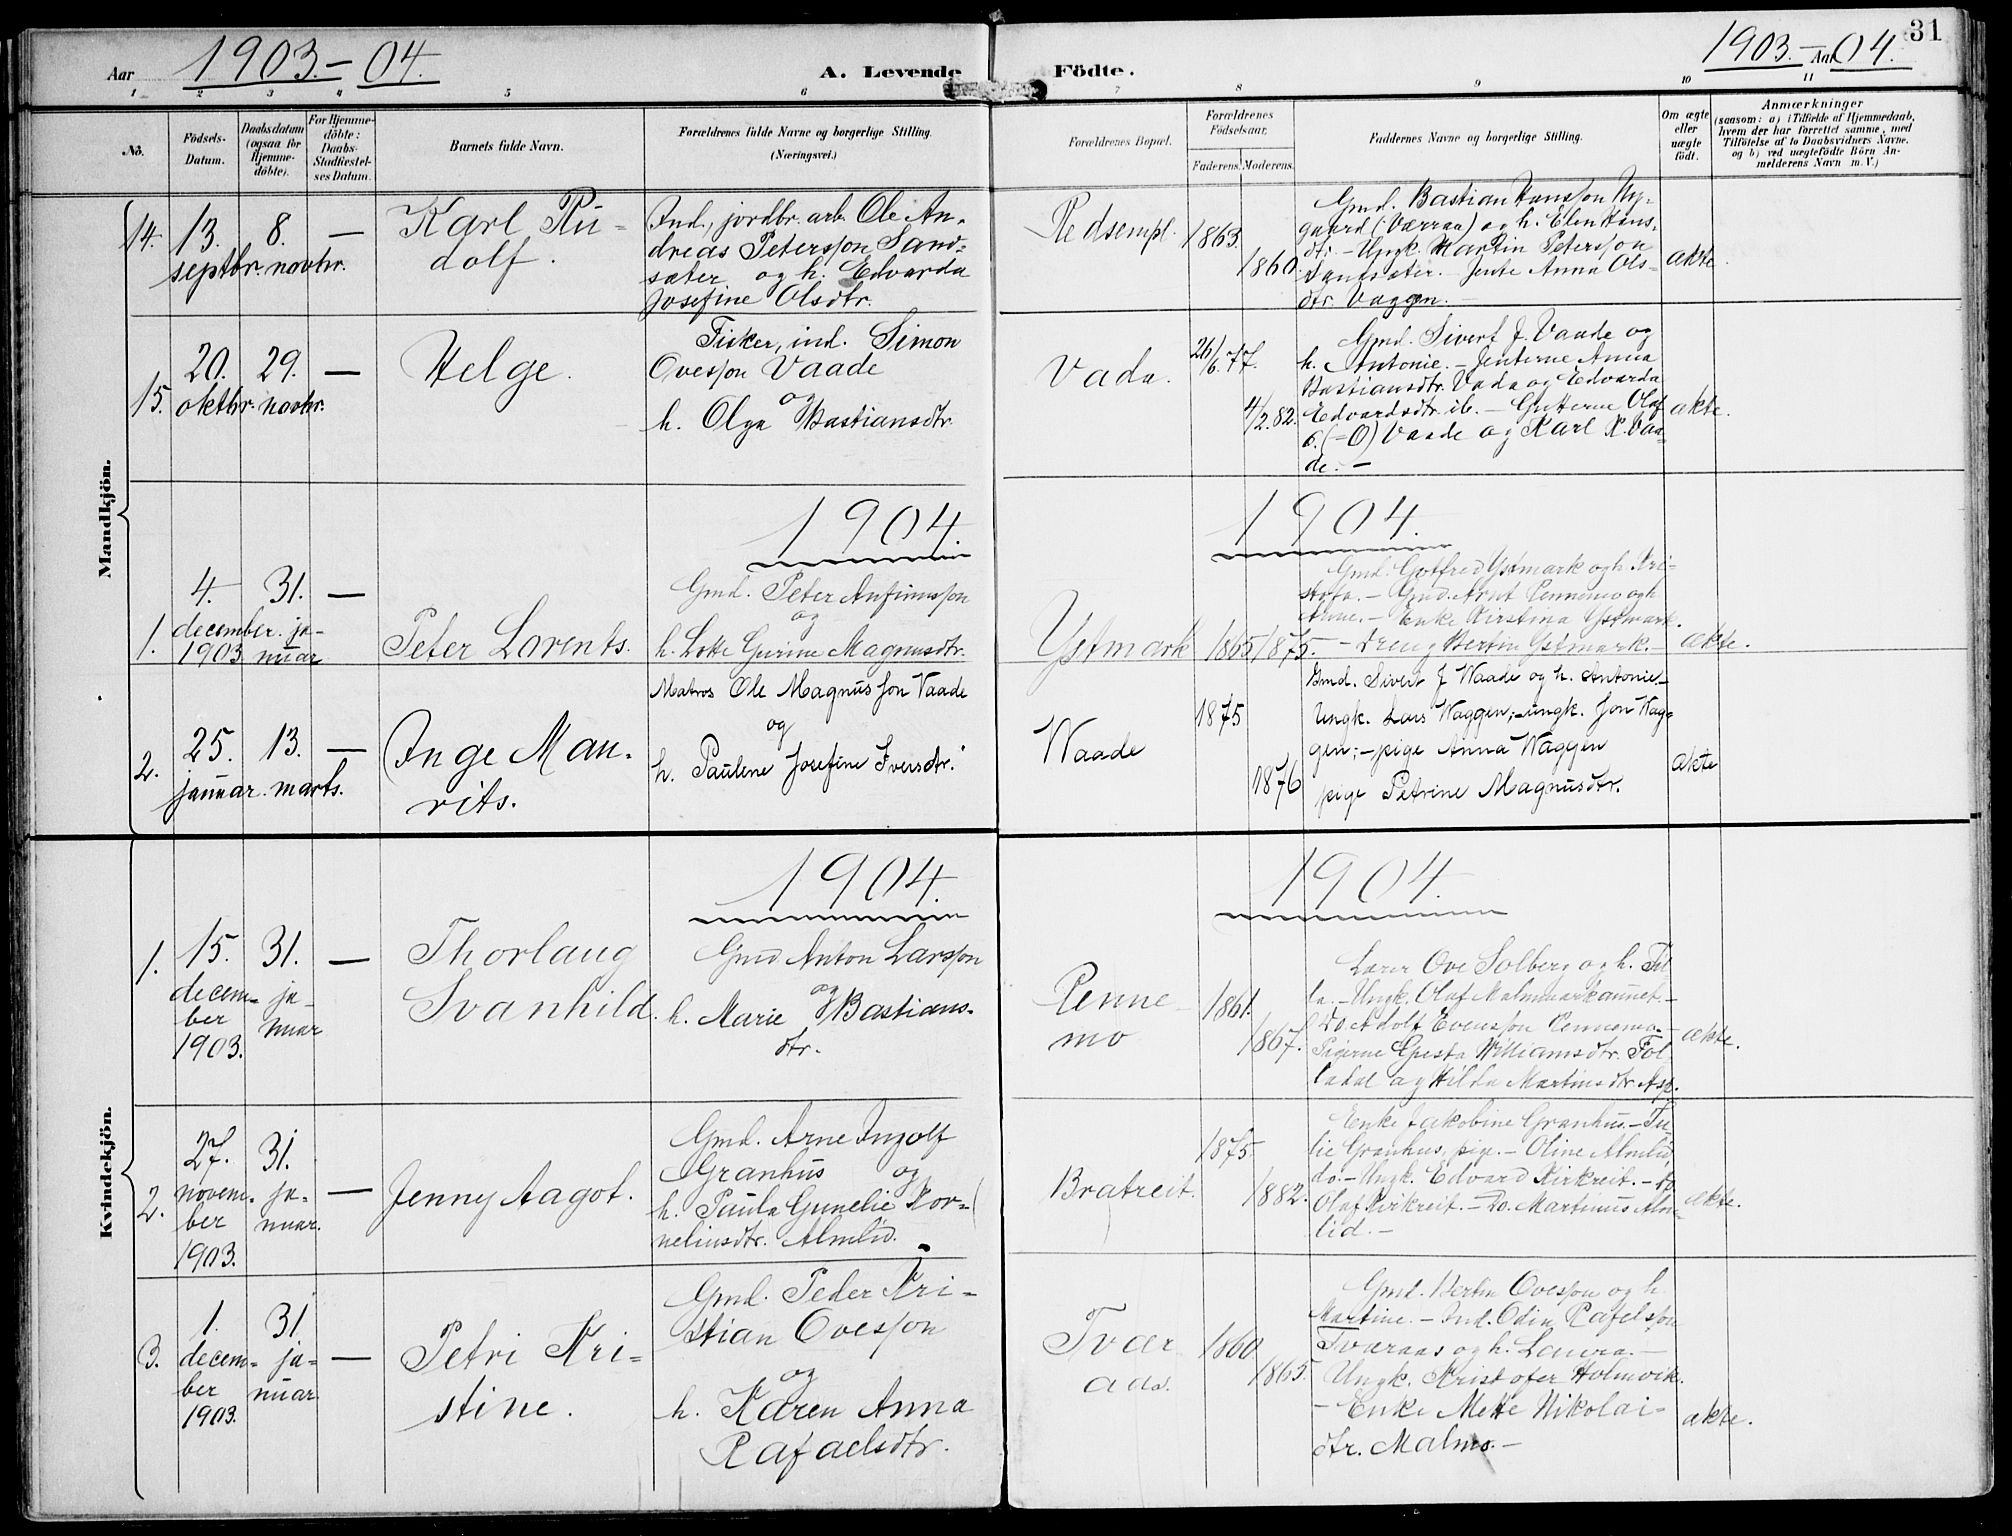 1903.–04.
Aar
A. Levende
Födte.
1903.–04.
Aar
31
1 2 3 4 5 6 7 8 9 10 11
No.
Födsels-
Datum.
Daabsdatum
(ogsaa for
Hjemme-
döbte).
For Hjemme-
döbte:
Daabs-
Stadfæstel-
ses Datum.
Barnets fulde Navn.
Forældrenes fulde Navne og borgerlige Stilling.
(Næringsvei.)
Forældrenes Bopæl.
Forældrenes
Födselsaar.
Faderens. Moderens.
Faddernes Navne og borgerlige Stilling.
Om ægte
eller
uægte
födt.
Anmærkninger
(saasom: a) i Tilfælde af Hjemmedaab,
hvem der har forrettet samme, med
Tilföielse af to Daabsvidners Navne,
og b) ved uægtefödte Börn An-
melderens Navn m. V.)
Mandkjön.
14.
13.
septbr.
8.
novbr.
—
Karl Ru-
dolf.
Ind., jordbr. arb. Ole An-
dreas Petersson Sand-
sæter og h. Edvarda
Josefine Olsdtr.
Redsempl.
1863.
1860.
Gmd. Bastian Hansson Ny-
gaard (Værran) og h. Elen Hans-
dtr. – Ungk. Martin Petersson
Sandsæter. – Jente Anna Ols-
dtr. Vaggen. –
ækte.
15.
20.
oktbr.
29.
novbr.
—
Helge.
Fisker, ind. Simon
Ovesson Vaade
og
h. Olga Bastiansdtr.
Vada.
26/6.77.
4/2.82.
Gmd. Sivert J. Vaade og
h. Antonie. – Jenterne Anna
Bastiansdtr. Vada og Edvarda
Edvardsdtr. ib. – Gutterne Olaf
O. (=O) Vaade og Karl R. Vaa-
de. –
ækte.
1904.
1904.
1.
4.
december.
1903
31.
ja-
nuar
—
Peter Lorents.
Gmd. Peter Anfinnsson
og
h. Lotte Gurine Magnusdtr.
Ystmark
1865
1875.
Gmd. Gotfred Ystmark og h. Kri-
stofa. – Gmd. Arnt Pennemo og h.
Anne. – Enke Kirstina Ystmark.
– Dreng Bertin Ystmark. –
ækte.
2.
25.
januar.
13.
marts.
—
Inge Mau-
rits.
Matros Ole Magnusson Vaade
og
h. Paulene Josefine Iversdtr.
Waade
1875
1876
Gmd. Sivert J Waade og h. Antonie. –
Ungk. Lars Waggen; – ungk. Jon Wag-
gen; – pige Anna Waggen
pige Petrine Magnusdtr.
ækte
Kvindekjön.
1904.
1904.
1.
15.
decem-
ber
1903.
31.
ja-
nuar
—
Thorlaug
Svanhild.
Gmd Anton Larsson
og
h. Marie Bastians-
dtr.
Penne-
mo
1861.
1867.
Lærer Ove Solberg og h. Til-
la. – Ungk. Olaf Malmmarkaunet. –
Do. Adolf Evensson Pennemo. –
Pigerne Gjesta Williamsdtr. Fol-
ladal og Hilda Martinsdtr. Asp.
ækte.
2.
27.
novem-
ber
1903.
31.
ja-
nuar.
—
Jenny Aagot.
Gmd. Arne Ingolf
Granhus og
h. Paula Gunelie Kor-
neliusdtr. Almlid.
Bratreit.
1875.
1882.
Enke Jakobine Granhus. – Ju-
lie Granhus, pige. – Oline Almlid,
do. – Ungk. Edvard Kirkreit. – do.
Olaf Kirkreit. – Do. Martinus Alm-
lid. –
ækte.
3.
1.
decem-
ber
1903.
31
ja-
nuar.
—
Petri Kri-
stine.
Gmd. Peder Kri-
stian Ovesson
og
h. Karen Anna
Rafaelsdtr.
Tvær-
aas.
1860
1865.
Gmd. Bertin Ovesson og h.
Martine. – Ind. Odin Rafelson
Tværaas og h. Laura. –
Ungk. Kristofer Holmvik.
– Enke Mette Nikolai-
dtr. Malmo. –
ækte.